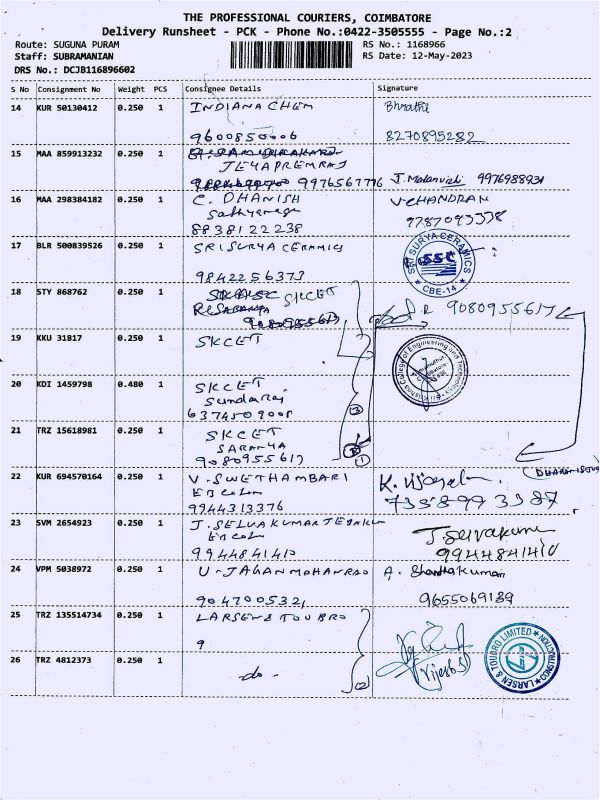 THE PROFESSIONAL COURIERS, COIMBATORE
Delivery Runsheet - PCK - Phone No.:0422-3505555 - Page No.:2
Route: SUGUNA PURAM
RS No.: 1168966
Staff: SUBRAMANIAN
RS Date: 12-May-2023
DRS No.: DCJB116896602
S No Consignment No Weight PCS Consignee Details Signature
14 KUR 50130412 0.250 1 INDIANA CHEM Bhrathi
9600850006 8270895282
15 MAA 859913232 0.250 1
JEYAPREMRAJ
9976567776 J. Malarvizhi 9976988931
16 MAA 298384182 0.250 1 C. DHANISH V-CHANDRAN
Sathyanaga
8838122238 9787093338
17 BLR 500839526 0.250 1 SRI SURYA CERAMICS
SRI SURYA CERAMICS
SSC
CBE-14
9842256373
18 STY 868762 0.250 1 SKCET
SARANYA
9080955617 9080955617
19 KKU 31817 0.250 1 SKCET
College of Engineering and Technology
20 KDI 1459798 0.480 1 SKCET
Sundaraj
6374509008
3
21 TRZ 15618981 0.250 1 SKCET
SARANYA
9080955617
1
22 KUR 694570164 0.250 1 V-SWETHAMBARI
EB Colony
9944313376 7358993387
23 SVM 2654923 0.250 1 J. SELVAKUMAR J. Selvakumar
EB Colony
9944841410 9944841410
24 VPM 5038972 0.250 1 U-JAGANMOHANRAO A. Shanthakumari
9047005321 9655069189
25 TRZ 135514734 0.250 1 LARSEN & TOUBRO
9
LARSEN & TOUBRO LIMITED CONSTRUCTION
26 TRZ 4812373 0.250 1 -do-
2